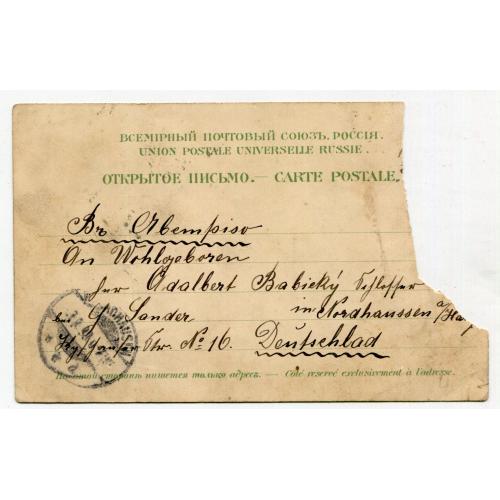 ВСЕМІРНЫЙ ПОЧТОВЫЙ СОЮЗЪ. РОССІЯ.
UNION POSTALE UNIVERSELLE RUSSIE.
ОТКРЫТОЕ ПИСЬМО.— CARTE POSTALE.
Въ Австрію
An Wohlgeboren
Herr Adalbert Babický Schlosser
bei G. Sander in Nordhaussen a/Harz
Str. No 16. Deutschlad
На этой сторонѣ пишется только адресъ. — Côté reservé exclusivement à l'adresse.